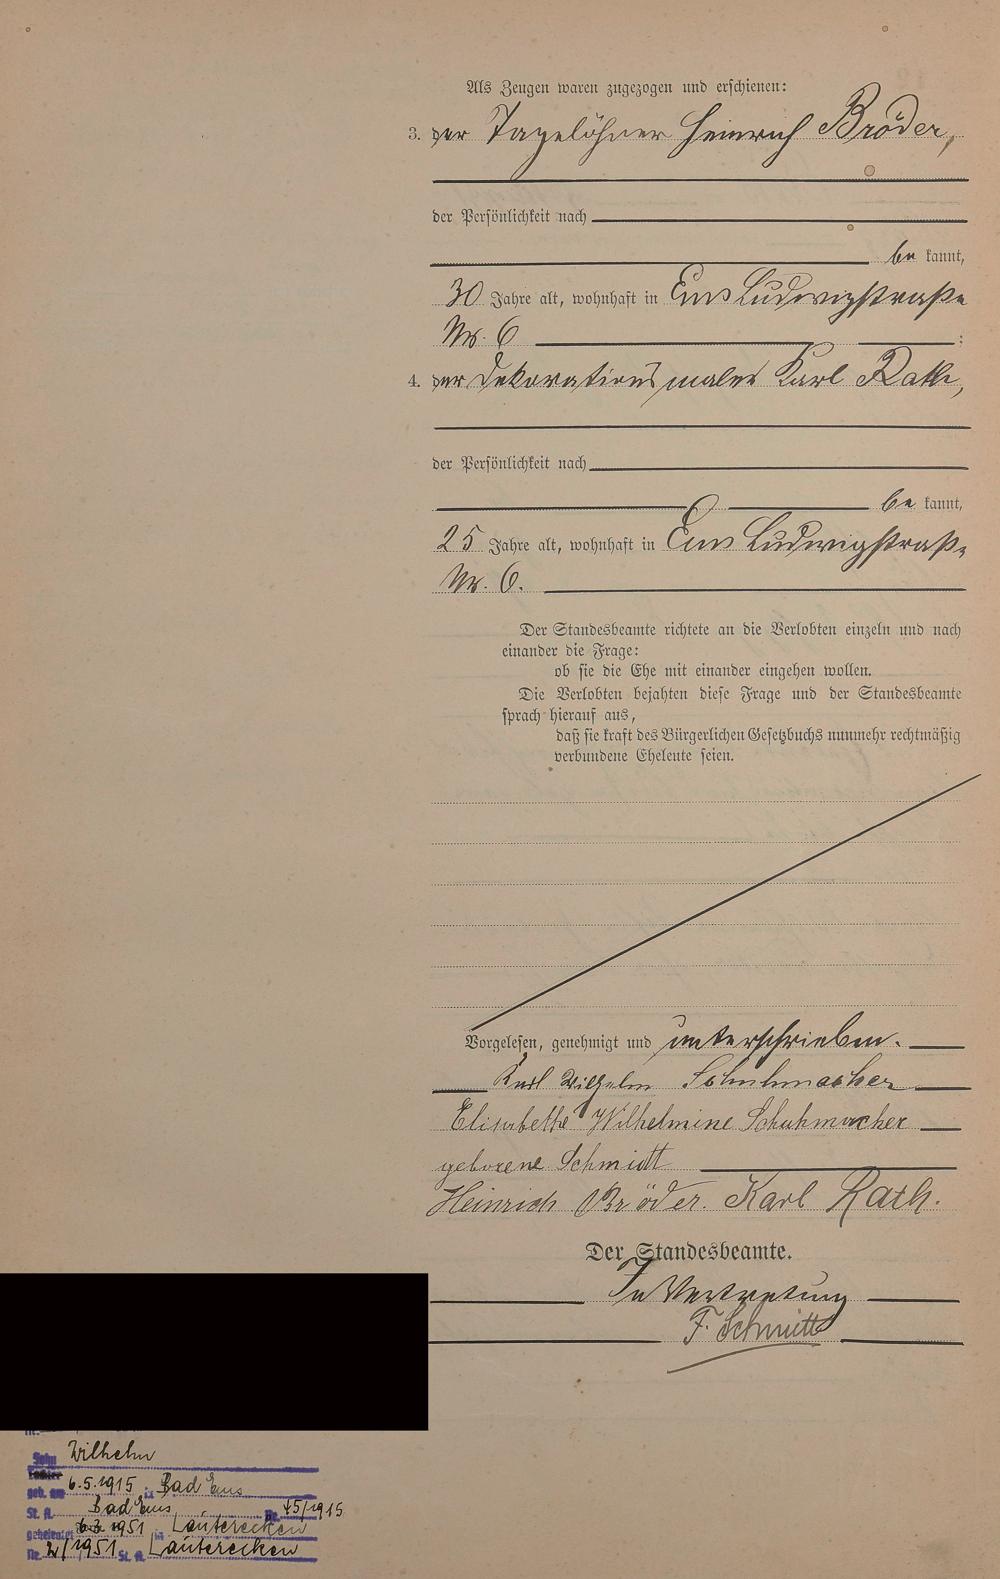 Als Zeugen waren zugezogen und erschienen:
3. der Tagelöhner Heinrich Bröder,
der Persönlichkeit nach
be kannt,
30 Jahre alt, wohnhaft in Ems Ludwigstraße
Nr. 6 ;
4. der Dekorationsmaler Karl Rath,
der Persönlichkeit nach
be kannt,
25 Jahre alt, wohnhaft in Ems Ludwigstraße
Nr. 6.
Der Standesbeamte richtete an die Verlobten einzeln und nach
einander die Frage:
ob sie die Ehe mit einander eingehen wollen.
Die Verlobten bejahten diese Frage und der Standesbeamte
sprach hierauf aus,
daß sie kraft des Bürgerlichen Gesetzbuchs nunmehr rechtmäßig
verbundene Eheleute seien.
Vorgelesen, genehmigt und unterschrieben.
Karl Wilhelm Schuhmacher
Elisabethe Wilhelmine Schuhmacher
geborene Schmidt
Heinrich Bröder. Karl Rath.
Der Standesbeamte.
In Vertretung
F. Schmitt
Sohn Wilhelm
geb. am 6.5.1915 in Bad Ems
St. A. Bad Ems Nr. 45/1915
geheiratet 1951 in Lauterecken
Nr. 2/1951 St. A. Lauterecken